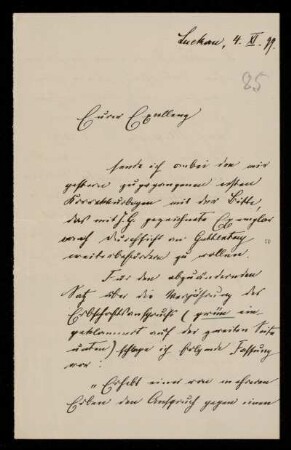 Luckau, 4. XI. 99.
25
Eurer Exzellenz
sende ich anbei den mir
gestern zugegangenen ersten
Korrekturbogen mit der Bitte,
das mit J. G. gezeichnete Exemplar
nach Durchsicht an Guttentag
weiterbefördern zu wollen.
Für den abzuändernden
Satz über die Verjährung des
Erbschaftsanspruchs (grün ein-
geklammert auf der zweiten Seite
unten) schlage ich folgende Fassung
vor:
„Erhebt einer von mehreren
Erben den Anspruch gegen einen